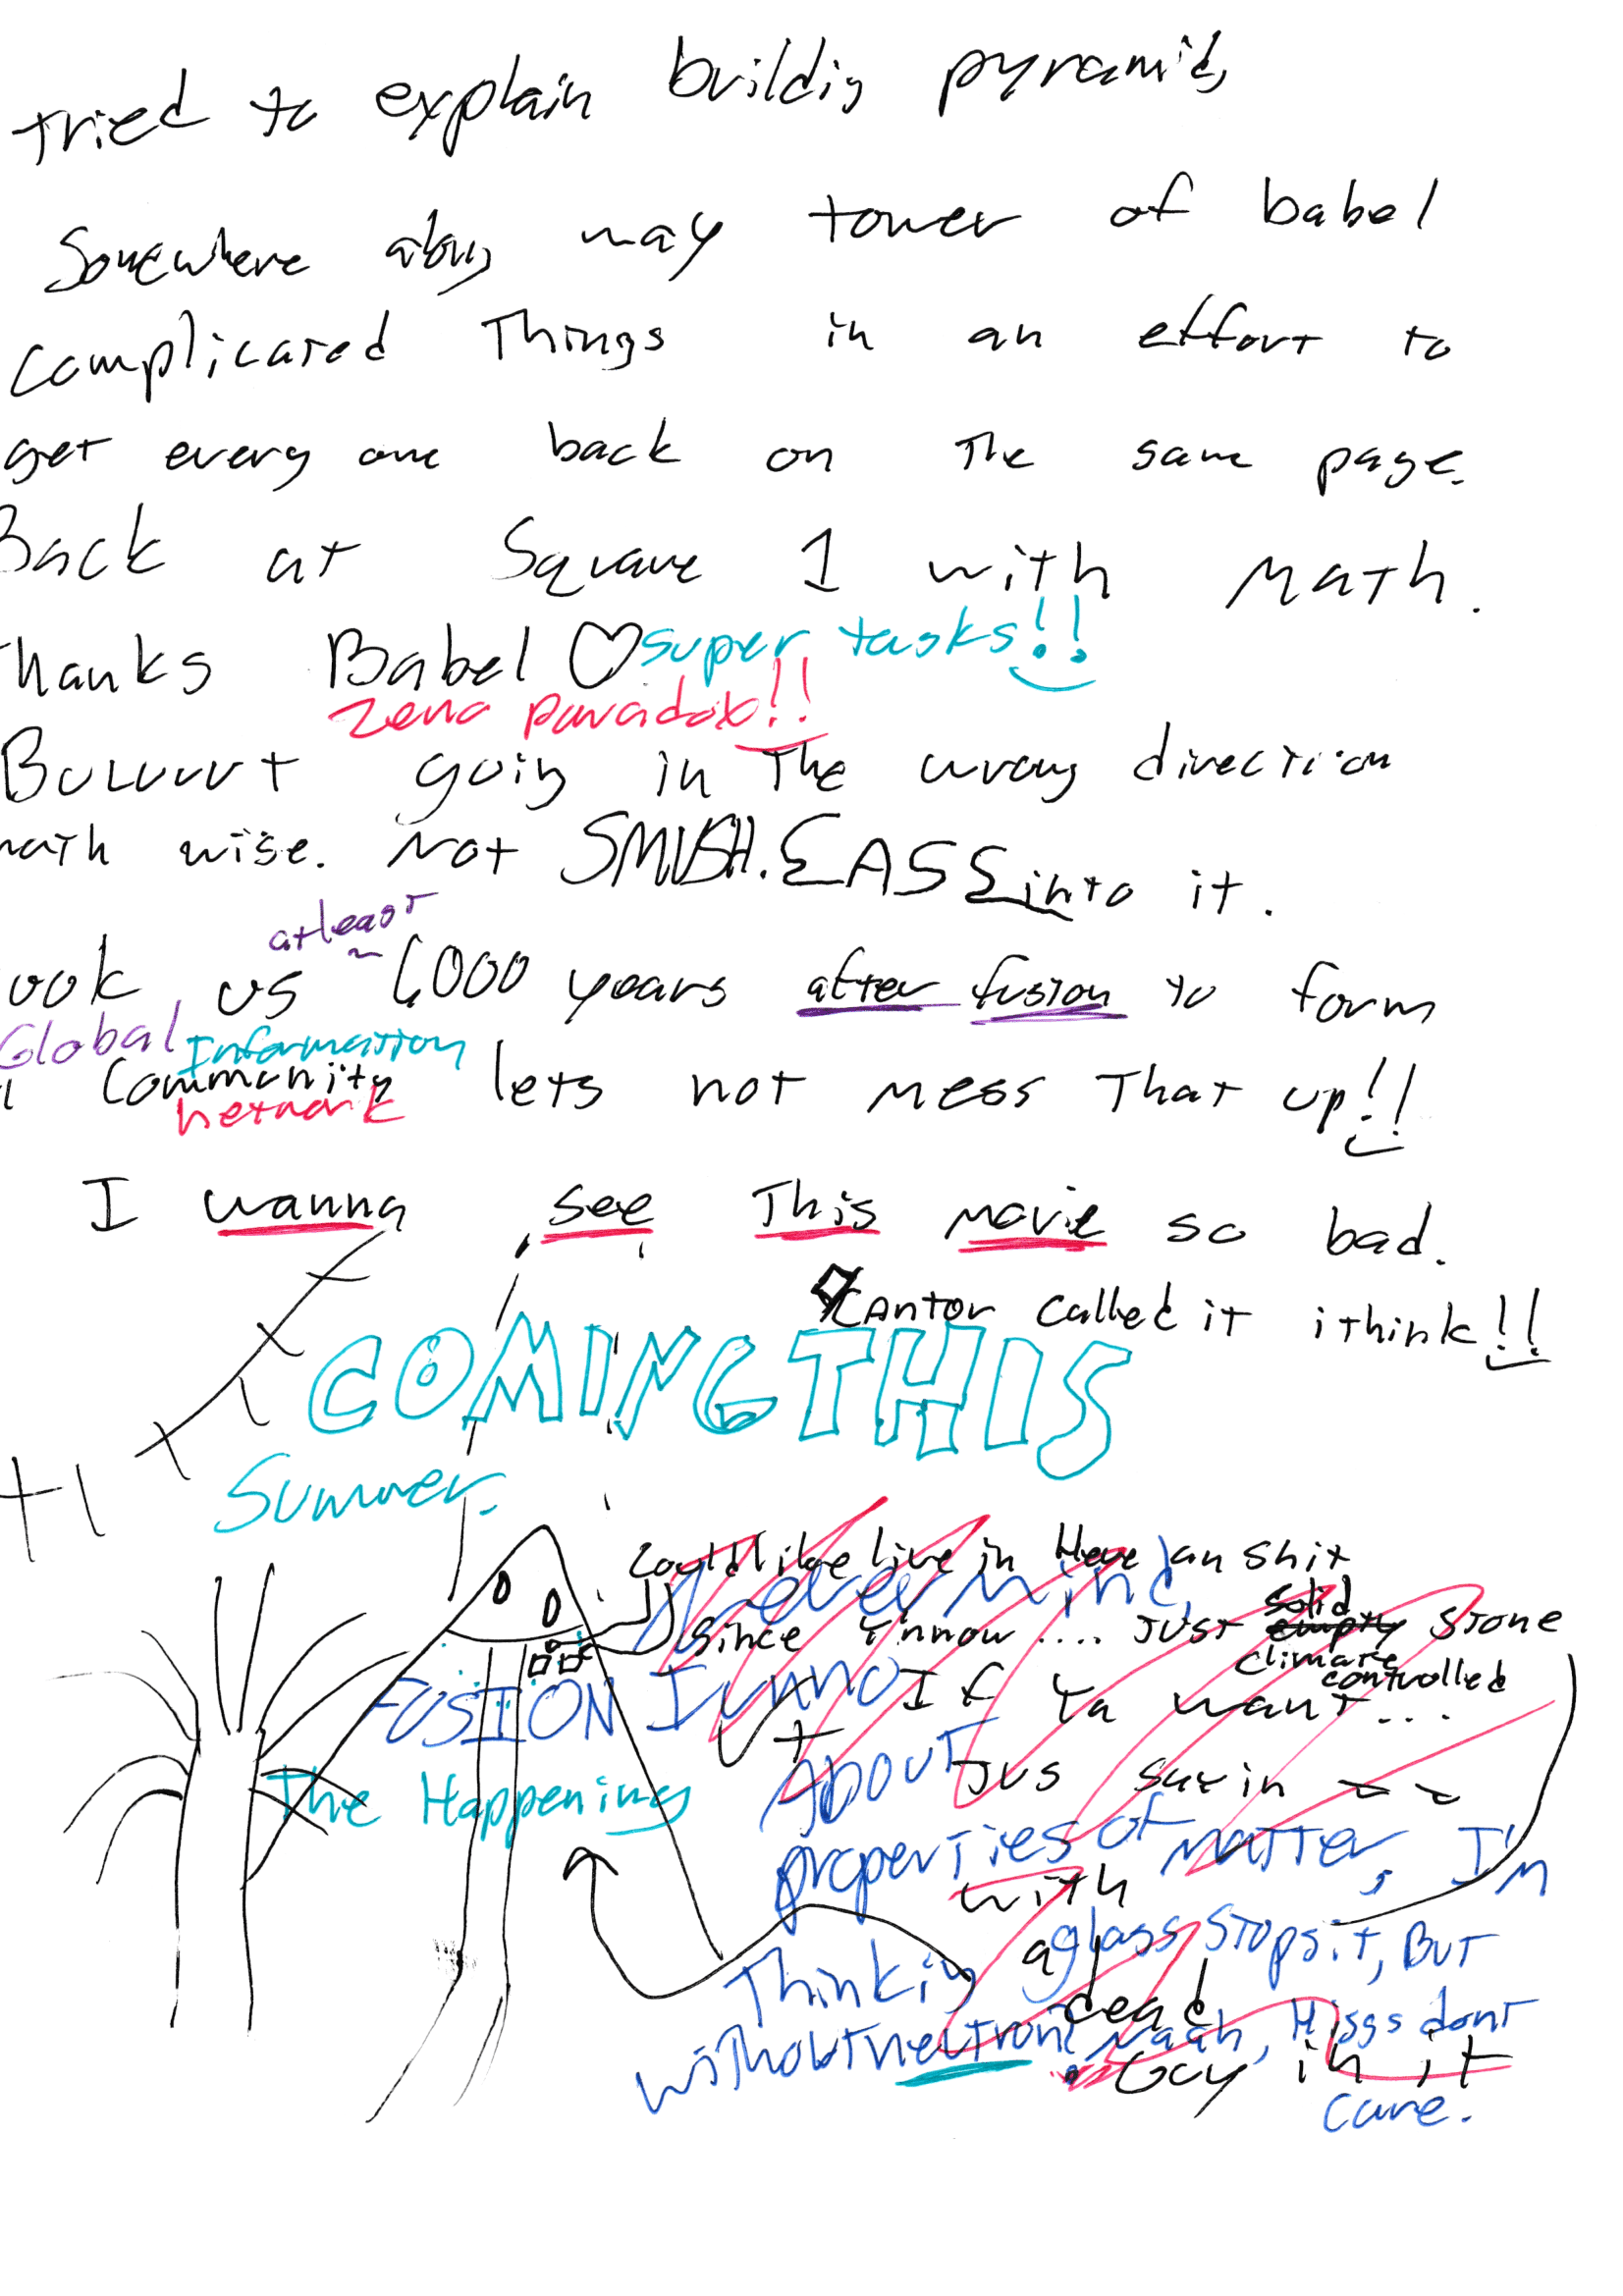 tried to explain buildig pyramids
Somewhere along may tower of babel
complicated Things in an effort to
get every one back on The same page.
Back at Square 1 with Math.
Thanks Babel ♡ super tasks!!
Zeno paradox!!
going in The wrong direction
math wise. Not SMUSH. EASE into it.
atleast
ook us ~ 6000 years after fusion to form
Global Information
Community lets not mess That up!!
network
I wanna see This movie so bad.
Cantor called it ithink!!
COMING THIS
Summer.
Could like live in Here an shit
Nevermind,
since Y'know.... JUST solid empty STone
climate controlled
FUSION I unno If Ya want...
+
About Jus sayin ~ ~
The Happening
properties of Matter, I'm
with
a glass stops it, But
Thinkig
dead
without neutron Nach, Higgs dont
Guy in it
care.